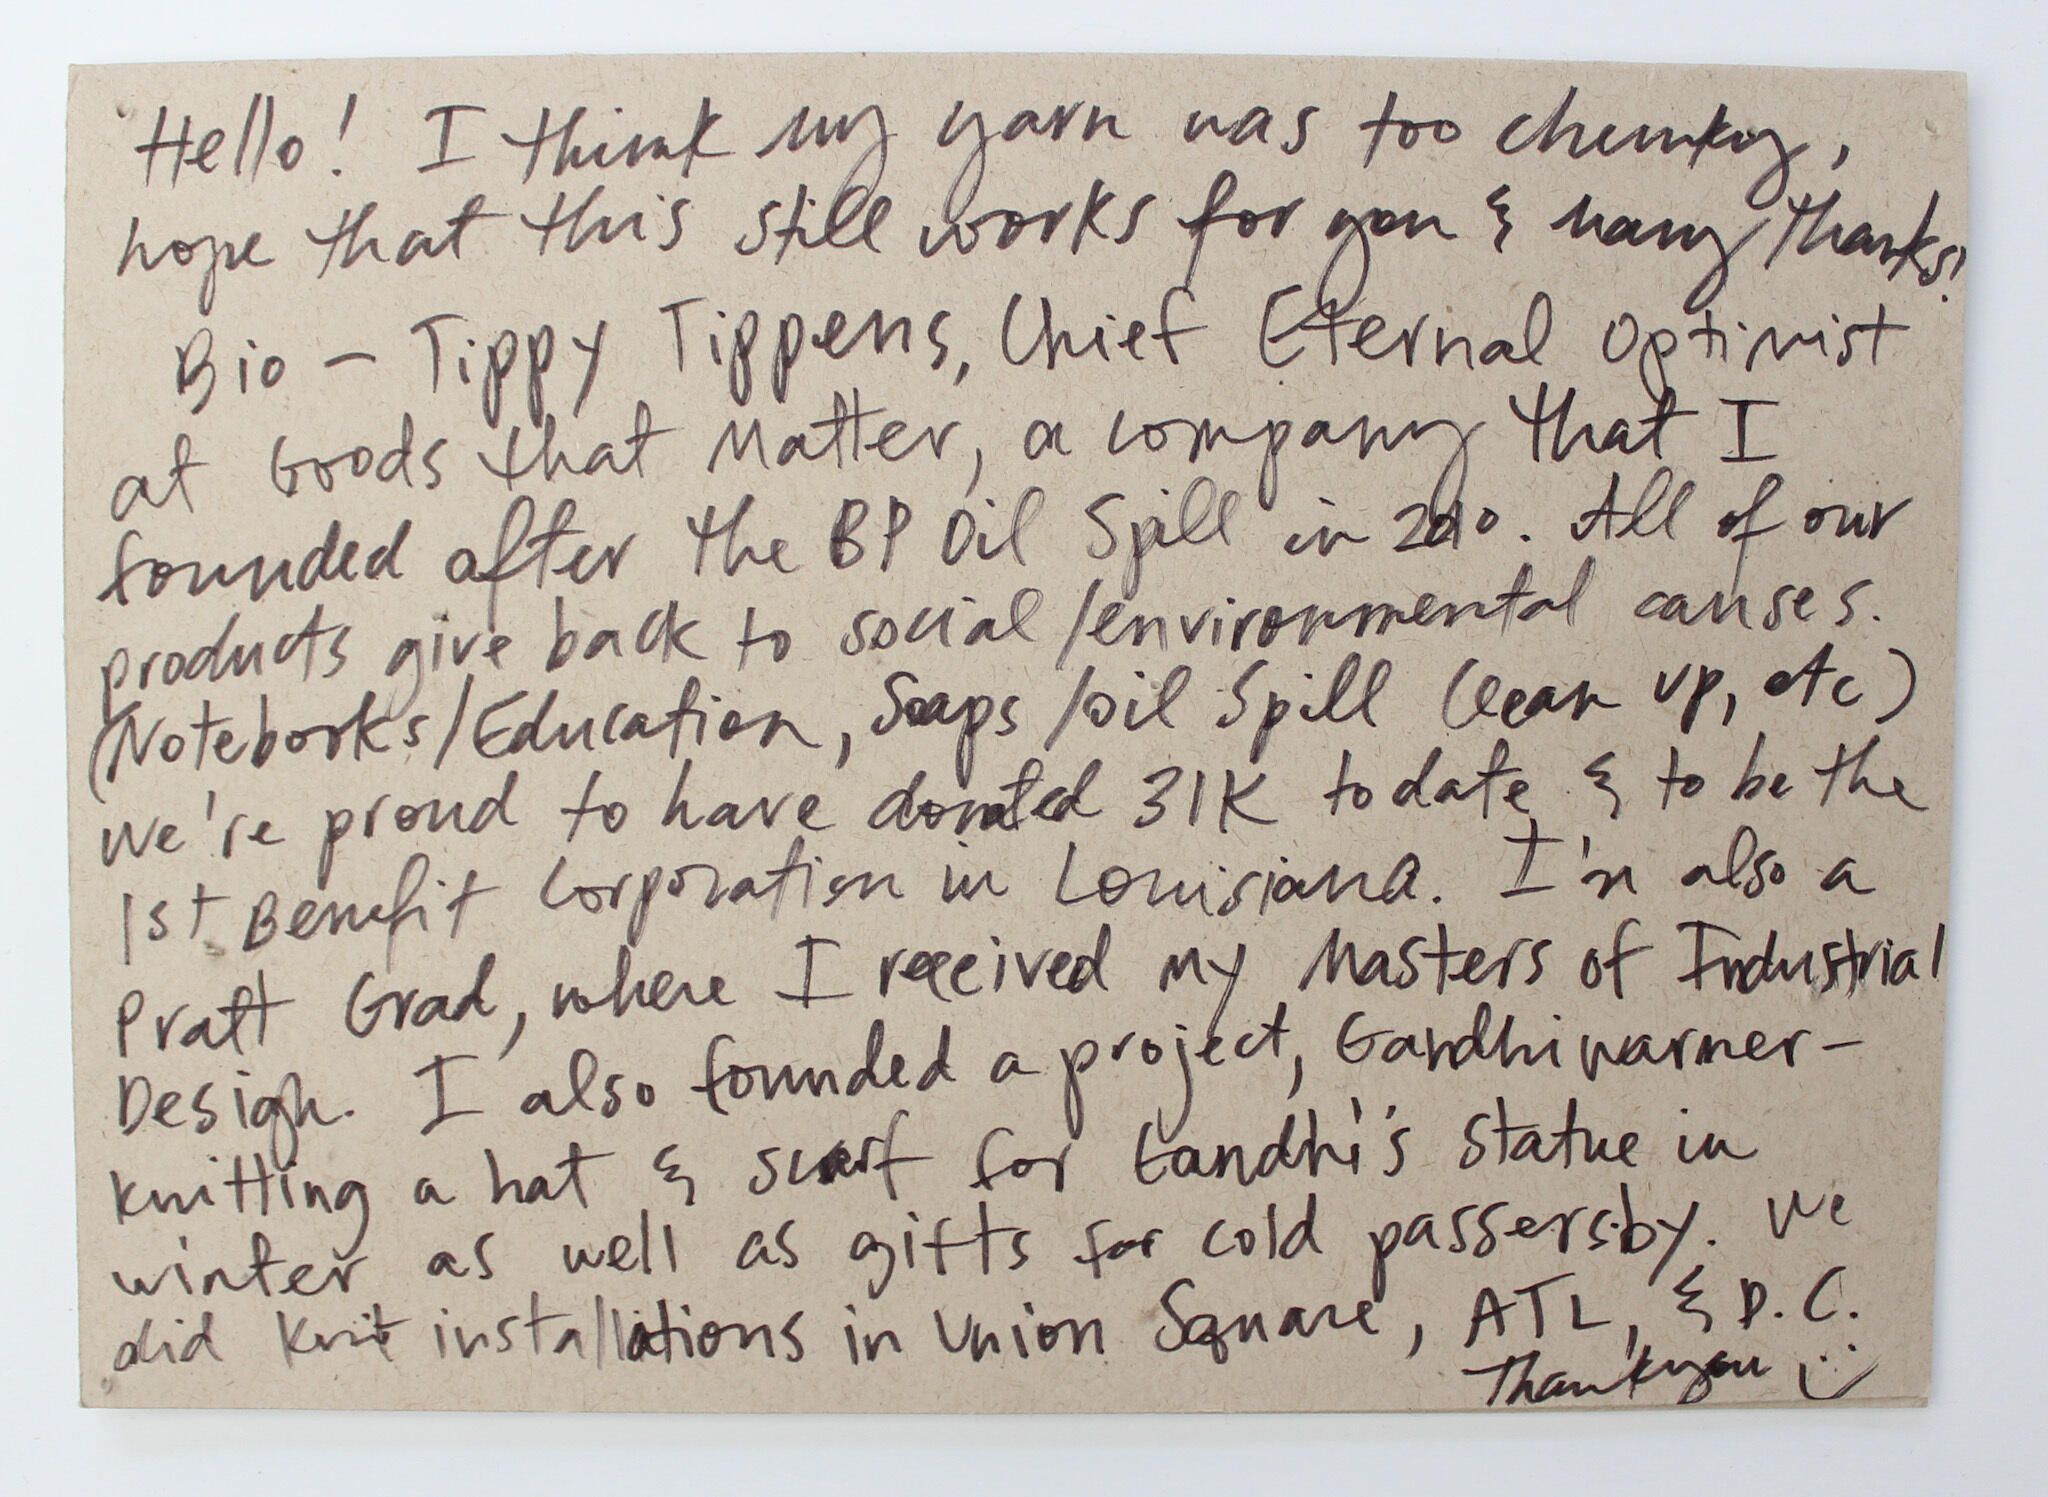 Hello! I think my yarn was too chunky,
hope that this still works for you & many thanks!
Bio - Tippy Tippens, Chief Eternal Optimist
at Goods that Matter, a company that I
founded after the BP Oil Spill in 2010. All of our
products give back to social/environmental causes.
(Notebooks/Education, Soaps/oil Spill Clean up, etc)
we're proud to have donated 31K to date & to be the
1st Benefit Corporation in Louisiana. I'm also a
Pratt Grad, where I received my Masters of Industrial
Design. I also founded a project, Gandhiwarmer -
knitting a hat & scarf for Gandhi's statue in
winter as well as gifts for cold passersby. We
did knit installations in Union Square, ATL, & D.C.
Thank you :)